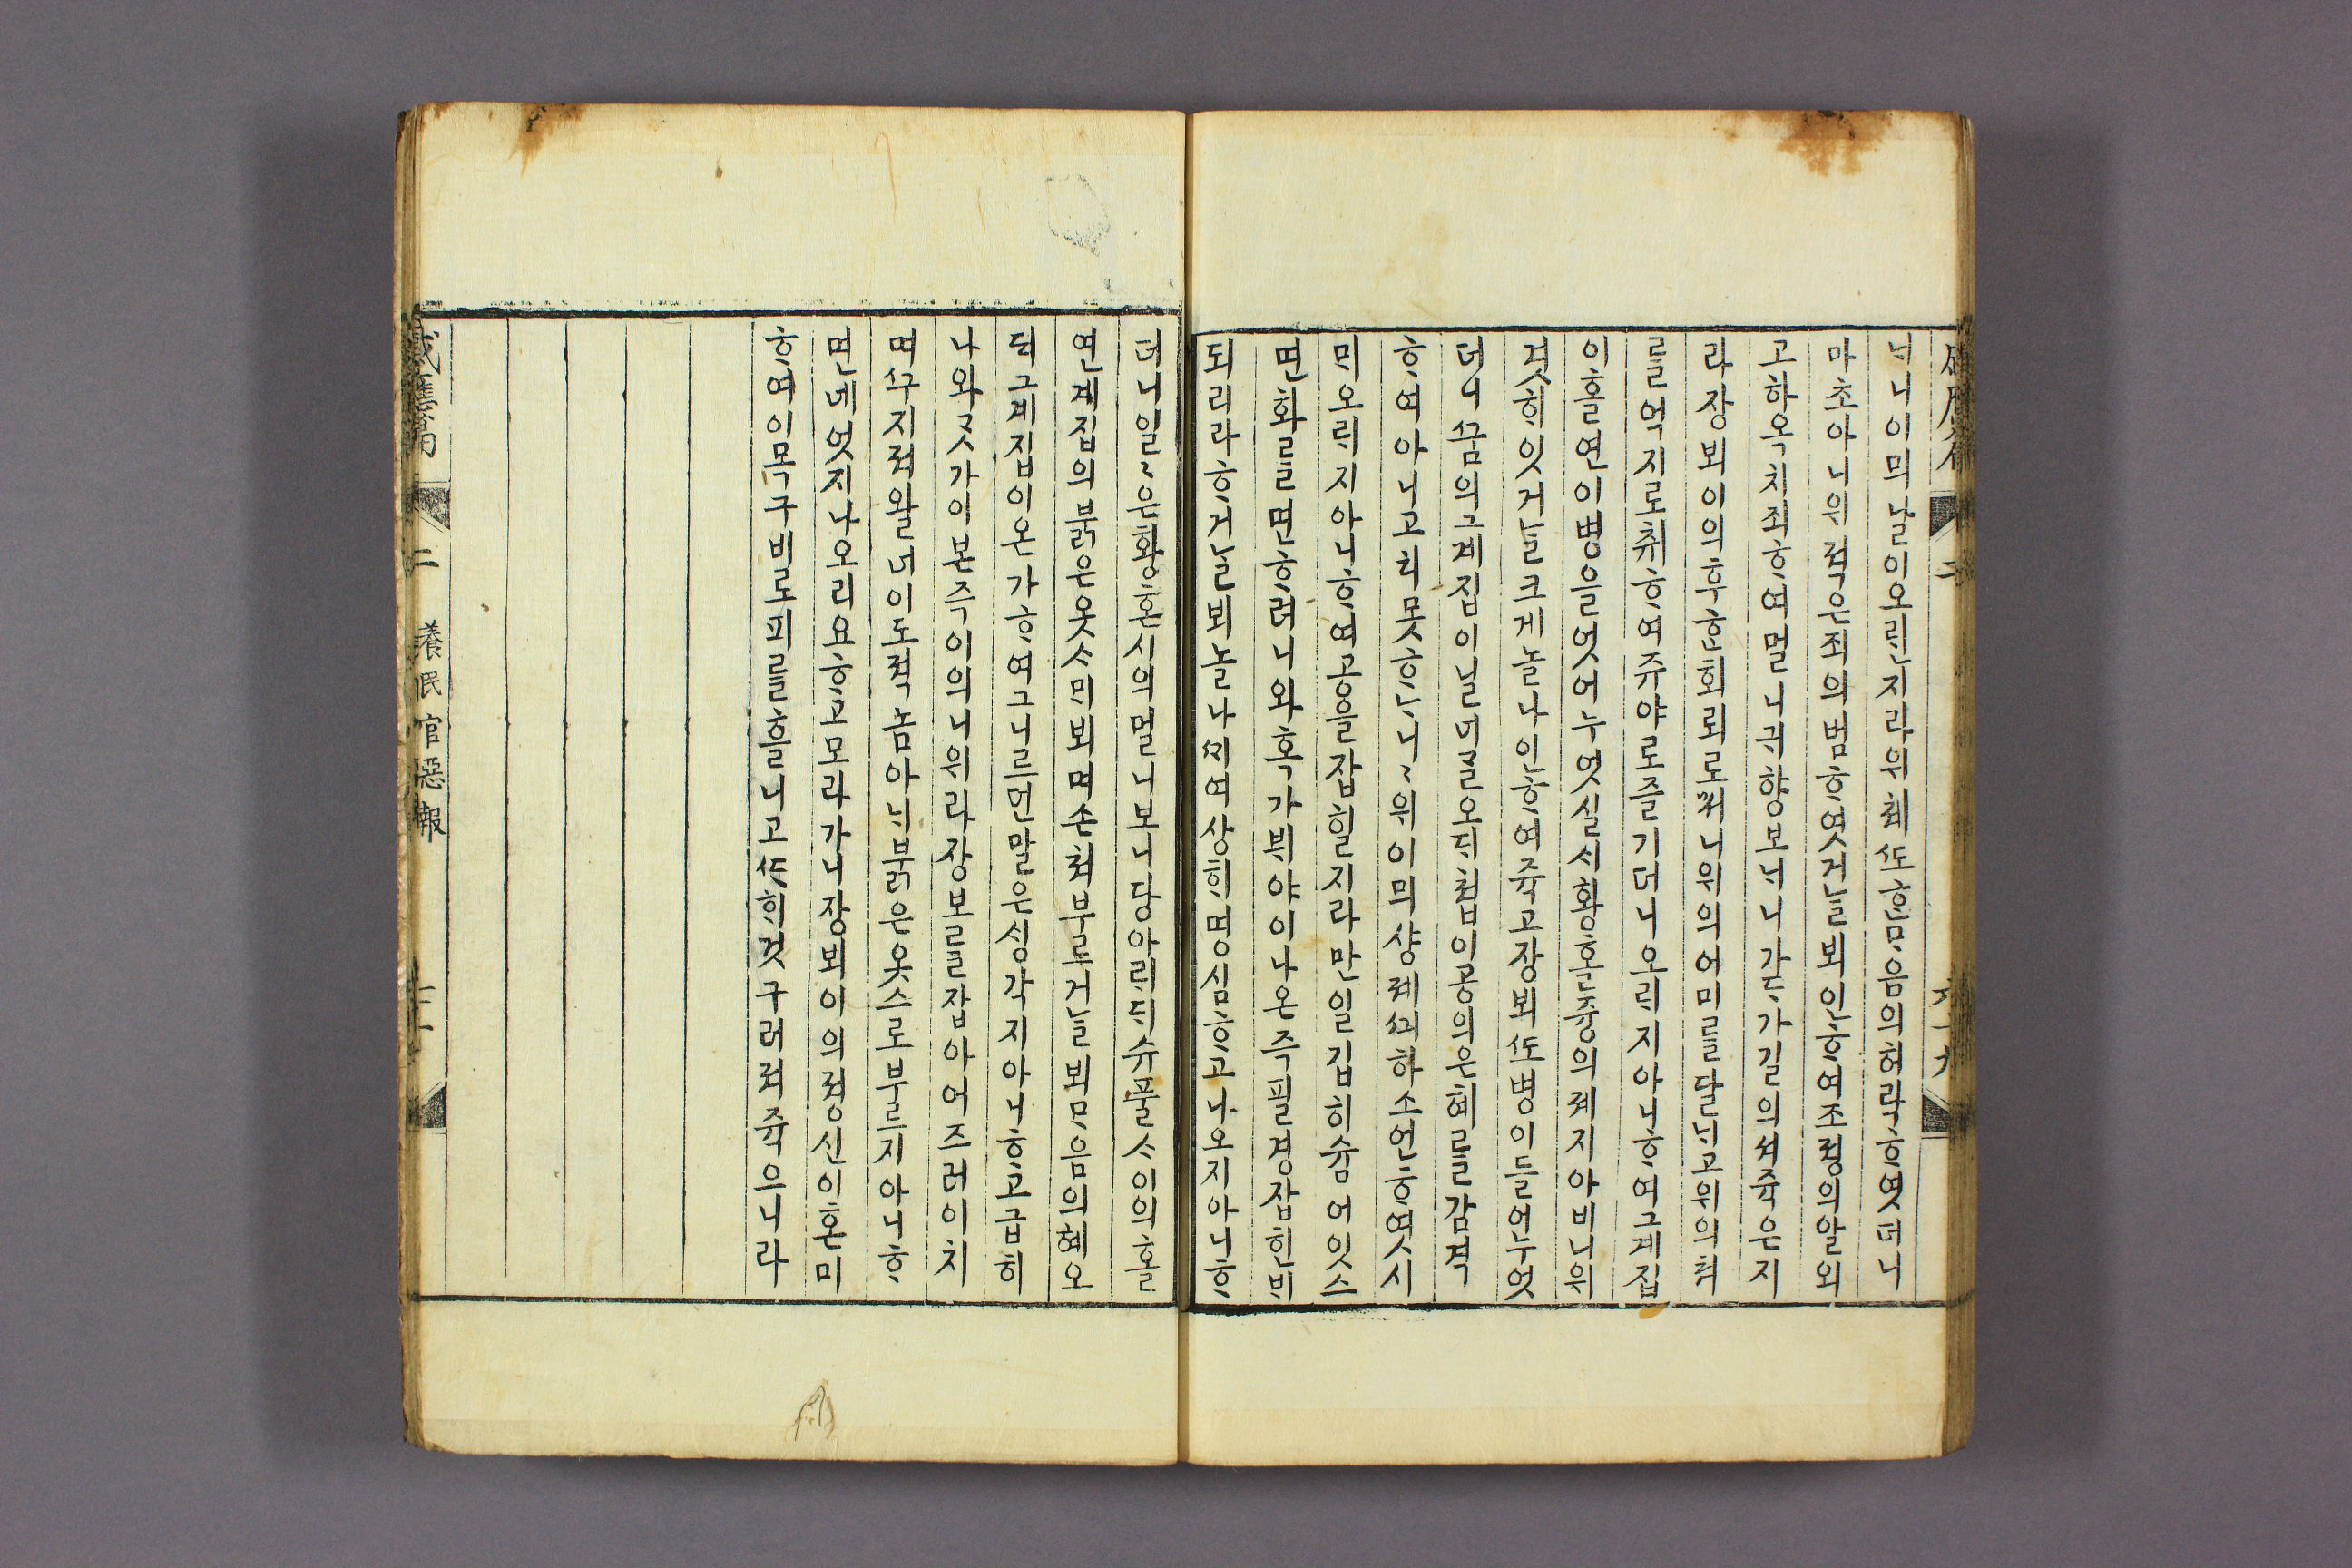 너니이믜날이오란지라위최ᄯᅩᄒᆞᆫᄆᆞ음의헤라ᄒᆞ엿더니
마초아니위젹은죄의범ᄒᆞ엿거ᄂᆞᆯ뵈인ᄒᆞ여조졍의알외
고하옥치죄ᄒᆞ여멀니귀향보내니가ᄂᆞᆫ가길의셔죽은지
라장뵈이의후ᄒᆞᆫ회뢰로ᄡᅥ니위의어미ᄅᆞᆯ달내고위의쳐
ᄅᆞᆯ억지로취ᄒᆞ여쥬야로즐기더니오래지아니ᄒᆞ여그계집
이홀연이병을엇어누엇실ᄉᆡ황혼즁의졔지아비니위
겻ᄒᆡ잇거ᄂᆞᆯ크게놀나인ᄒᆞ여죽고장뵈ᄯᅩ병이들어누엇
더니ᄭᅮᆷ의그계집이닐너ᄀᆞᆯ오ᄃᆡ쳡이공의은혜ᄅᆞᆯ감격
ᄒᆞ여아니고치못ᄒᆞᄂᆞ니니위이믜샹졔ᄭᅴ하소연ᄒᆞ엿시
ᄆᆡ오래지아니ᄒᆞ여공을잡힐지라만일깁히숨어잇스
면화ᄅᆞᆯ면ᄒᆞ려니와혹가ᄇᆡ야이나온즉필경잡힌ᄇᆡ
되리라ᄒᆞ거ᄂᆞᆯ뵈놀나ᄭᆡ여샹ᄒᆡ명심ᄒᆞ고나오지아니ᄒᆞ
더니일일은황혼시의멀니보니당아래ᄃᆡ슈풀ᄉᆞ이의홀
연계집의붉은옷ᄉᆞᄆᆡ뵈며손쳐부르거ᄂᆞᆯ뵈ᄆᆞ음의혜오
ᄃᆡ그계집이온가ᄒᆞ여그니르던말은ᄉᆡᆼ각지아니ᄒᆞ고급히
나와ᄀᆞᆺ가이본즉이의니위라장보ᄅᆞᆯ잡아어즈러이치
며ᄭᅮ지져왈더이도젹놈아내붉은옷스로부르지아니ᄒᆞ
면네엇지나오리요ᄒᆞ고모라가니장뵈이의졍신이혼미
ᄒᆞ여이목구비로피ᄅᆞᆯ흘니고ᄯᅡᄒᆡ것구러져죽으니라
感應篇 二 養民官惡報